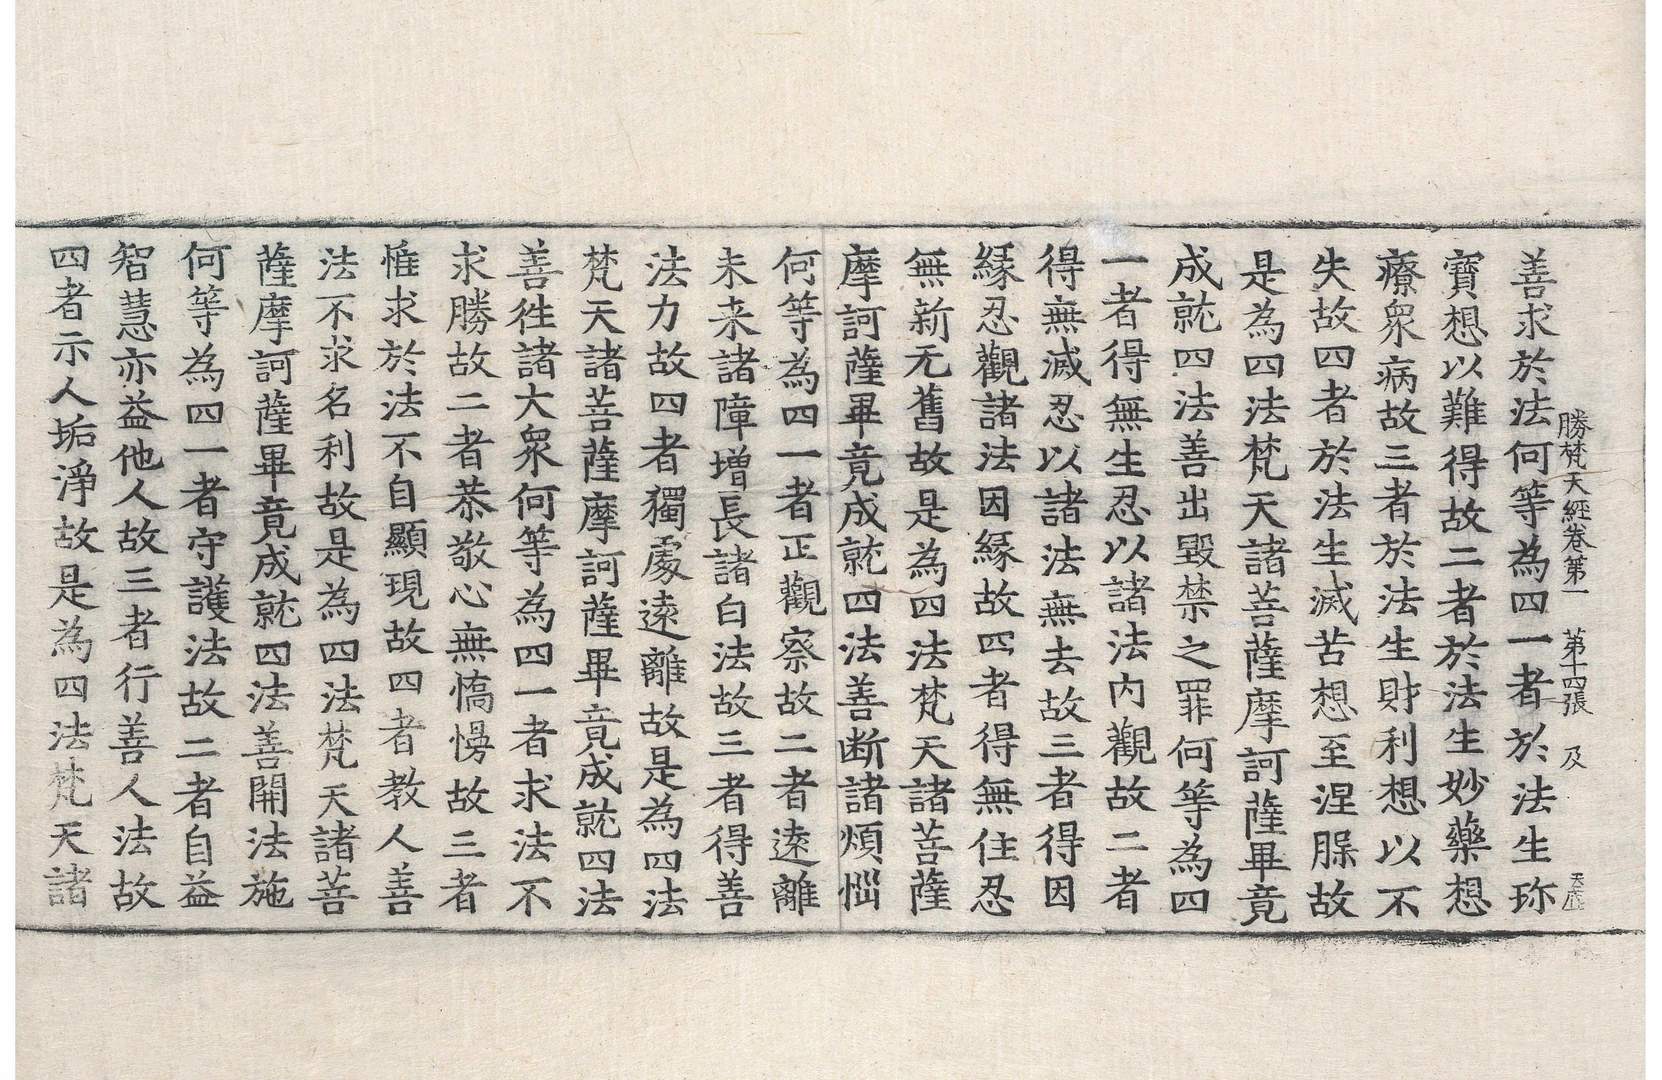 勝梵天經卷第一　第十四張　及
善求於法何等為四一者於法生珎
寳想以難得故二者於法生妙藥想
療衆病故三者於法生財利想以不
失故四者於法生滅苦想至涅槃故
是為四法梵天諸菩薩摩訶薩畢竟
成就四法善出毀禁之罪何等為四
一者得無生忍以諸法內觀故二者
得無滅忍以諸法無去故三者得因
緣忍觀諸法因緣故四者得無住忍
無新无舊故是為四法梵天諸菩薩
摩訶薩畢竟成就四法善断諸煩惱
何等為四一者正觀察故二者遠離
未来諸障增長諸白法故三者得善
法力故四者獨處遠離故是為四法
梵天諸菩薩摩訶薩畢竟成就四法
善徃諸大衆何等為四一者求法不
求勝故二者恭敬心無憍慢故三者
惟求於法不自顯現故四者教人善
法不求名利故是為四法梵天諸菩
薩摩訶薩畢竟成就四法善開法施
何等為四一者守護法故二者自益
智慧亦益他人故三者行善人法故
四者示人垢淨故是為四法梵天諸